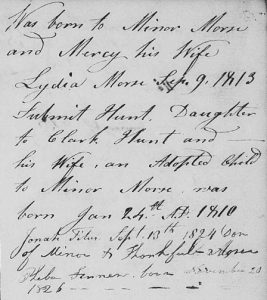 Was born to Minor Morse
and Mercy his Wife
Lydia Morse Sep. 9. 1813
Submit Hunt. Daughter
to Clark Hunt and —
his Wife, an Adopted Child
to Minor Morse, was
born Jan 24th AD. 1810
Jonah Titus Sept. 13th 1824 Son
of Minor & Thankfull Morse
Pheba Fenner born November 20
1826